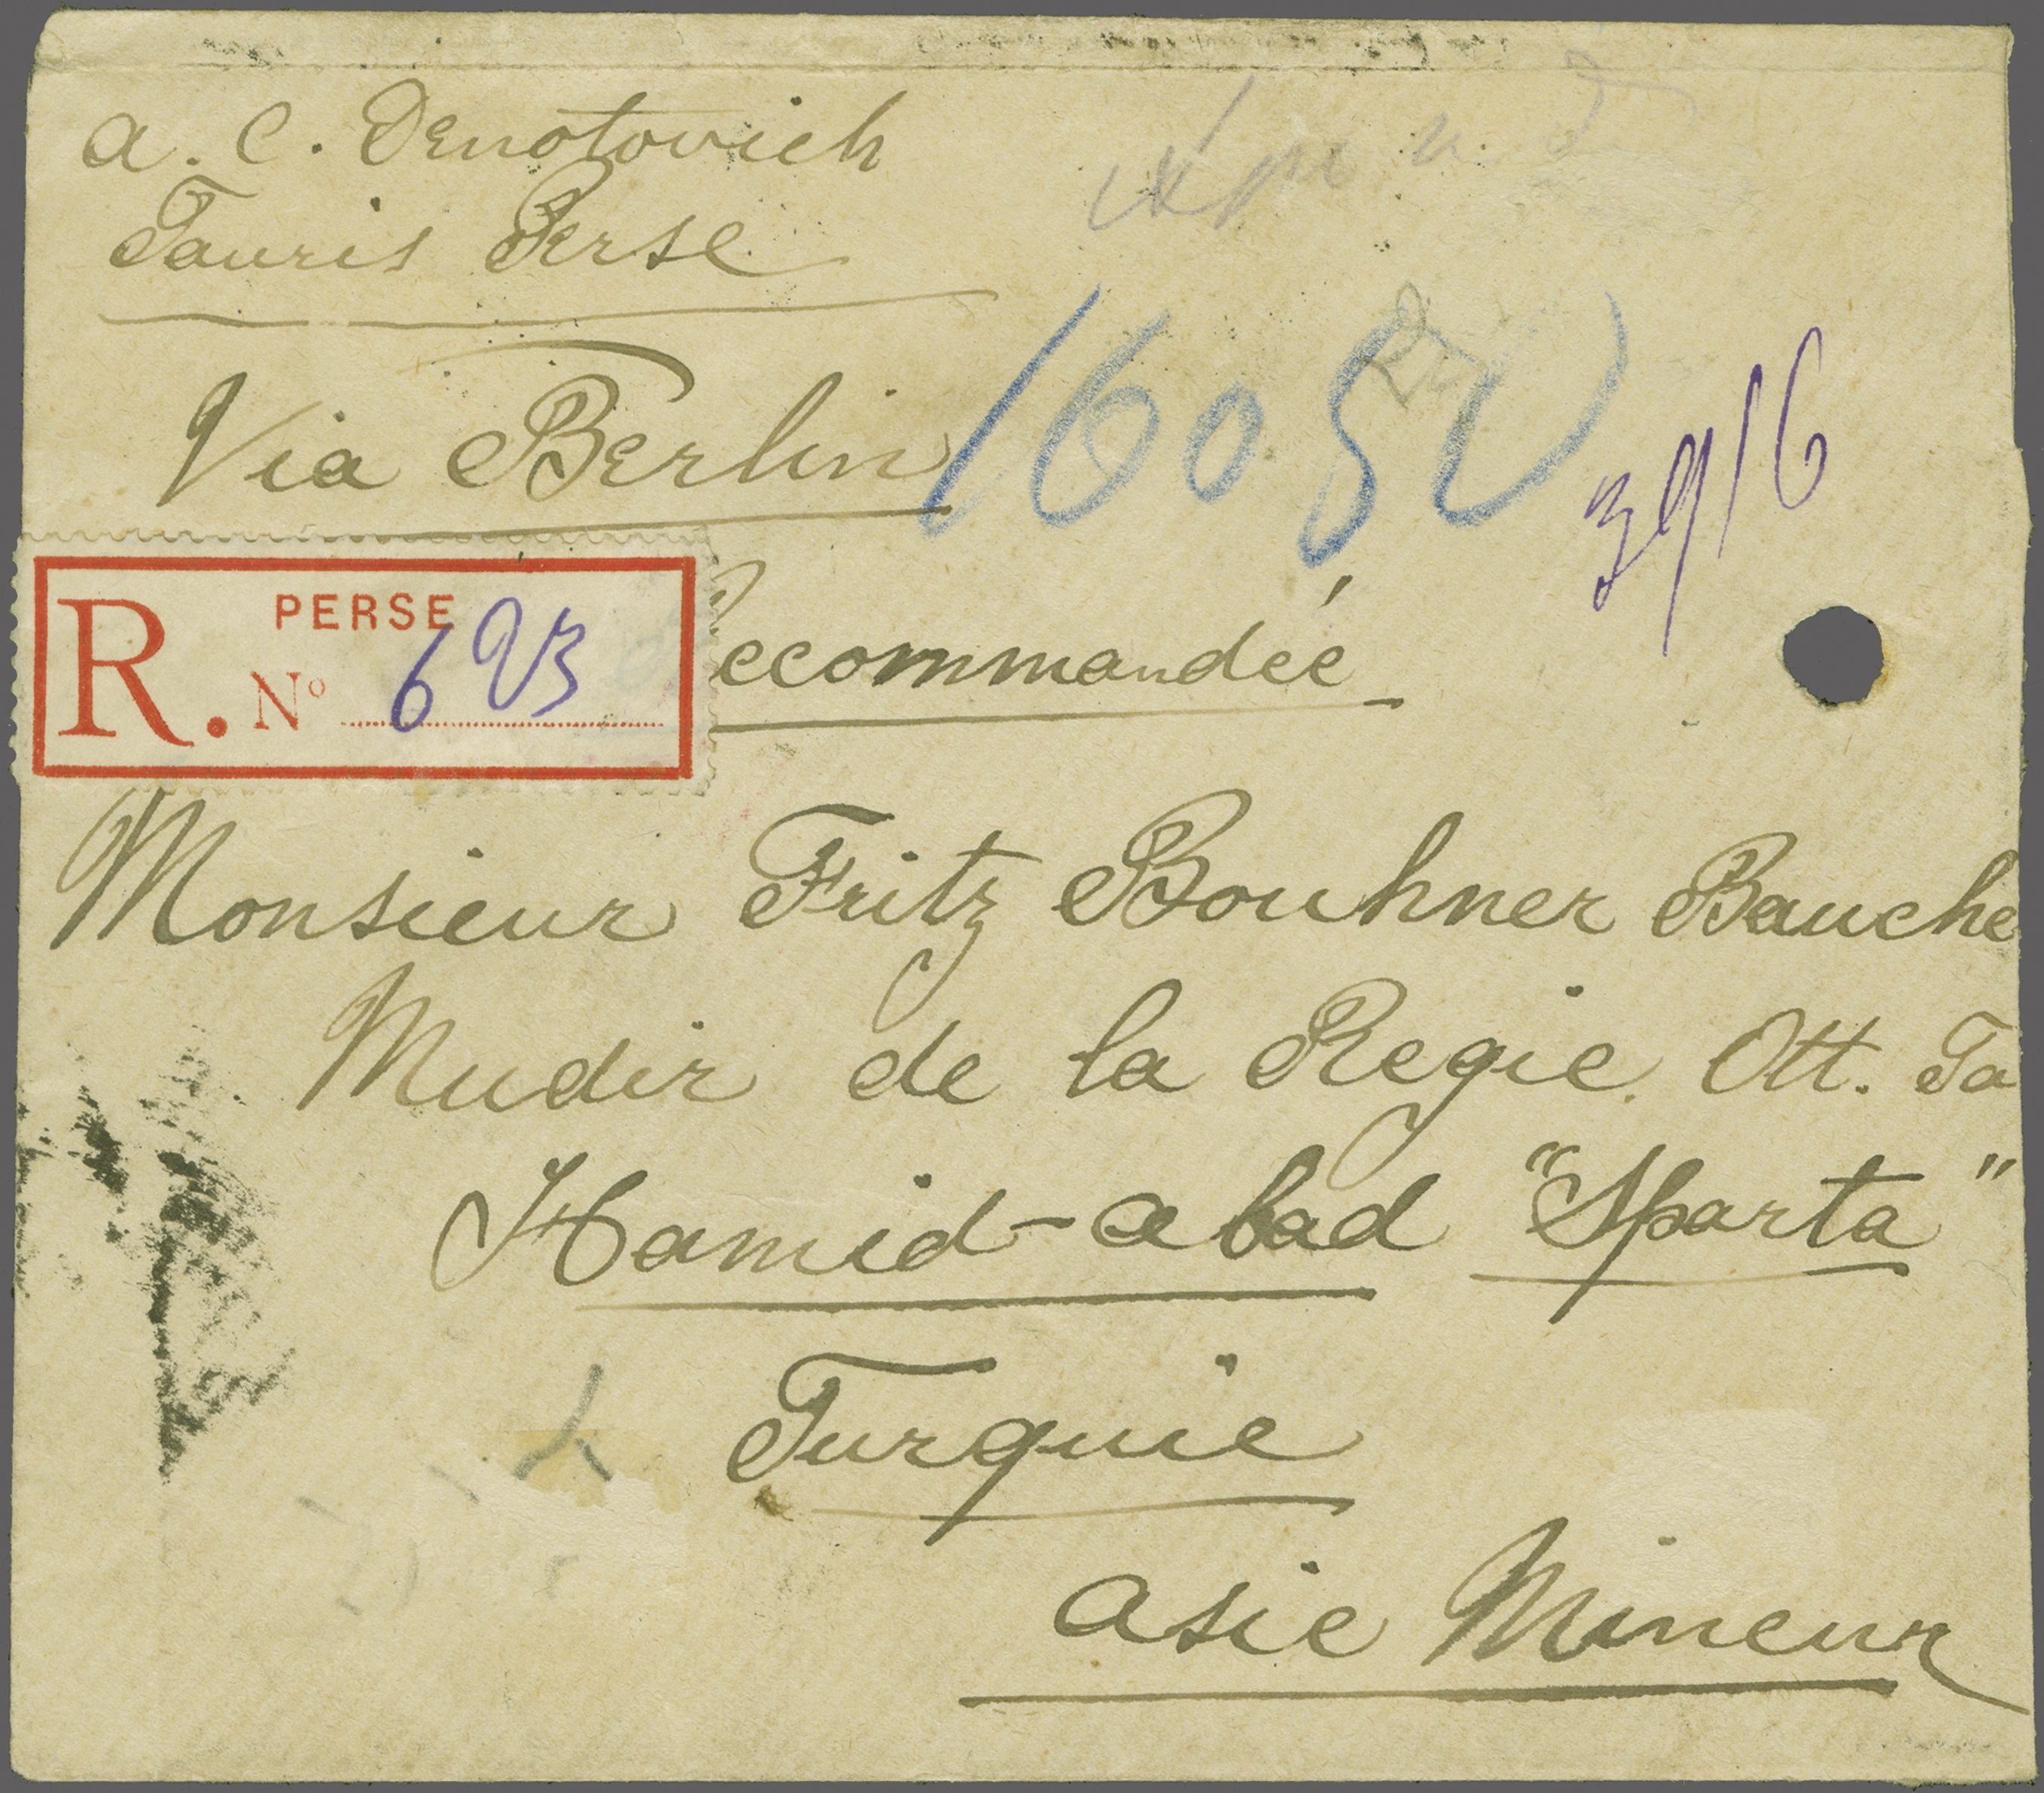 a. C. Denotovich
Tauris Perse
Via Berlin
1605
3916
R. PERSE
No 693
ecommandée
Monsieur Fritz Bouhner Bauche
Mudir de la Regie. Ott. Ta
Hamid-abad "Sparta"
Turquie
asie Mineur